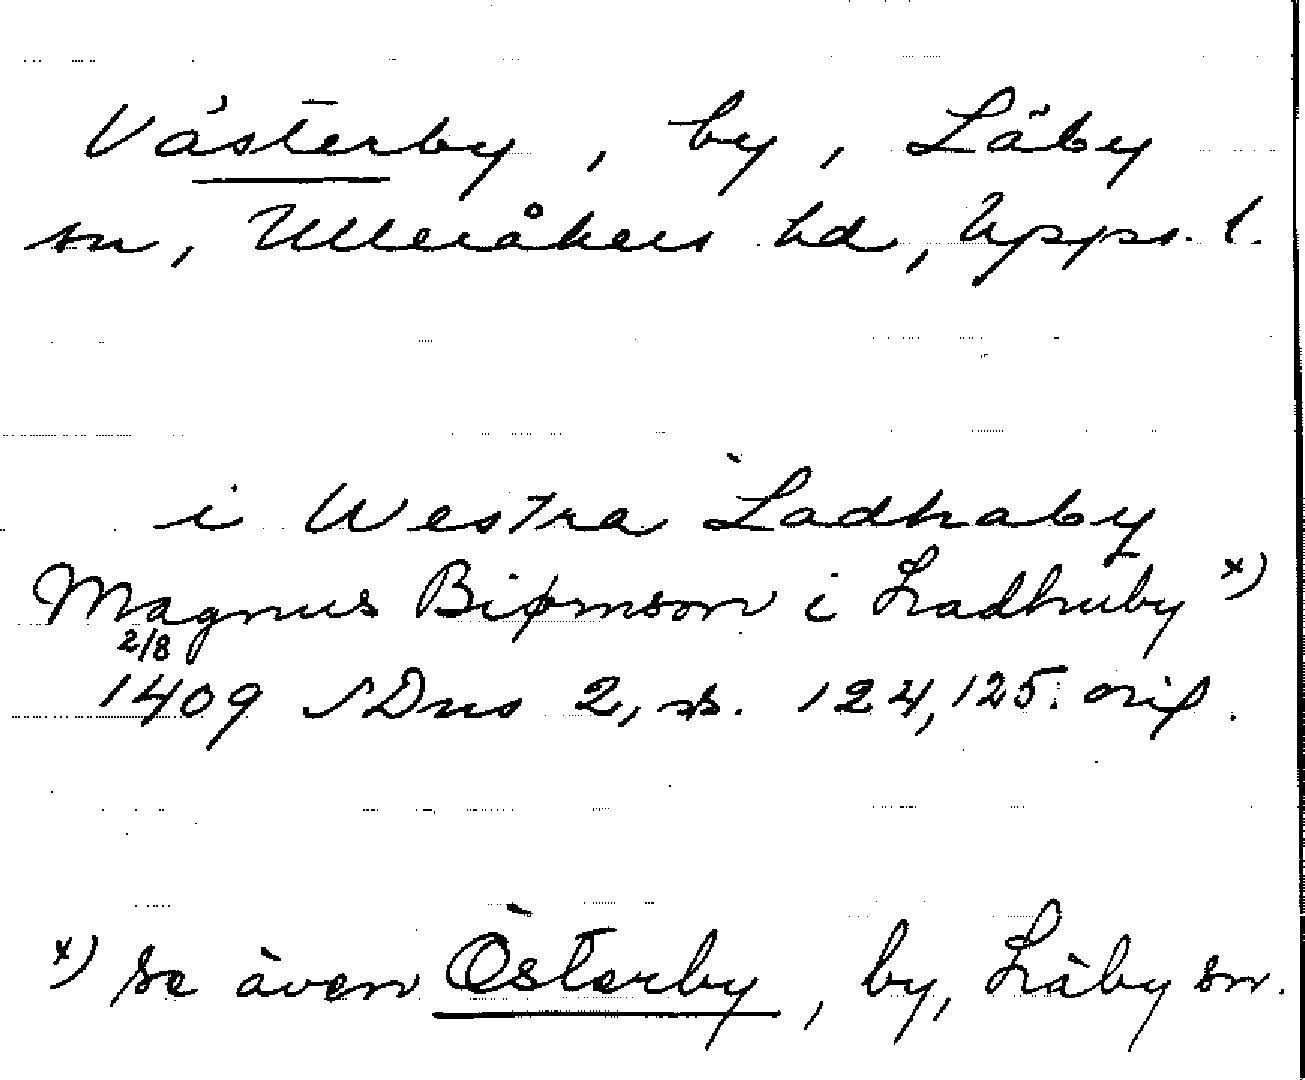 Västerby, by, Läby
sn, Ulleråkers hd, Upps. l.
i Westra Ladhaby
Magnus Biørnson i Ladhuby x)
2/8
1409 SDns 2, s. 124, 125. orig.
x) se även Österby, by, Läby sn.